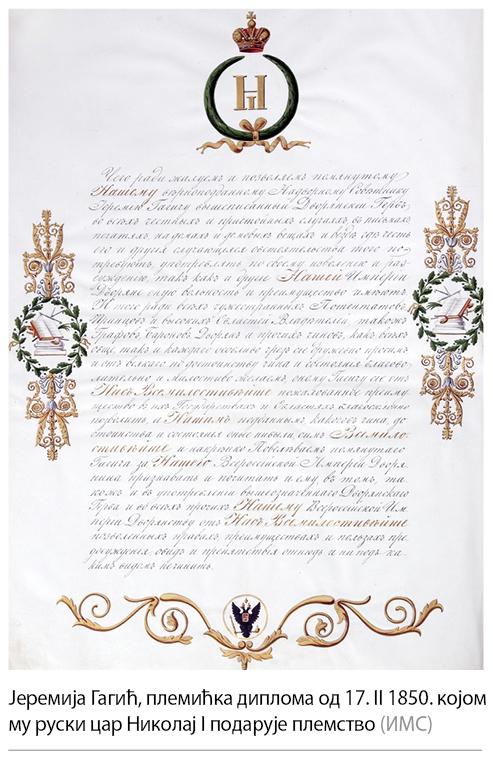 НI
Чего ради жалуемъ и позволяемъ помянутому
Нашему вѣрноподданному Надворному Совѣтнику
Іеремiи Гагичу вышеписанный Дворянскiй Гербъ
во всѣхъ честныхъ и пристойныхъ случаяхъ, въ письмахъ
печатяхъ, на домахъ и домовыхъ вещахъ и вездѣ гдѣ честь
его и другiя случающiяся обстоятельства того по-
требуютъ, употреблять по своему изволенiю и раз-
сужденiю, такъ какъ и другiе Нашей Имперiи
Дворяне оную вольность и преимущество имѣютъ.
И того ради всѣхъ чужестранныхъ Потентатовъ,
Принцовъ и высокихъ Областей Владѣтелей, такожъ
Графовъ, Бароновъ, Дворянъ и прочихъ чиновъ, какъ всѣхъ
обще, такъ и каждаго особливо чрезъ сiе дружебно просимъ
и отъ всякаго по достоинству чина и состоянiя благово-
лительно и Милостиво желаемъ, оному Гагичу сiе отъ
Насъ Всемилостивѣйше пожалованное преиму-
щество въ ихъ Государствахъ и Областяхъ благосклонно
позволить, а Нашимъ подданнымъ, какого бъ чина, до-
стоинства и состоянiя оные ни были, симъ Всемило-
стивѣйше и накрѣпко Повелѣваемъ помянутаго
Гагича за Нашего Всероссiйской Имперiи Дворя-
нина признавать и почитать и ему въ томъ, та-
кожъ и въ употребленiи вышеозначеннаго Дворянскаго
Герба и во всѣхъ прочихъ Нашему Всероссiйской Им-
перiи Дворянству отъ Насъ Всемилостивѣйше
позволенныхъ правахъ, преимуществахъ и пользахъ пре-
досужденiя, обидъ и препятствiя отнюдь и ни подъ ка-
кимъ видомъ не чинить.
Јеремија Гагић, племићка диплома од 17. II 1850. којом
му руски цар Николај I подарује племство (ИМС)